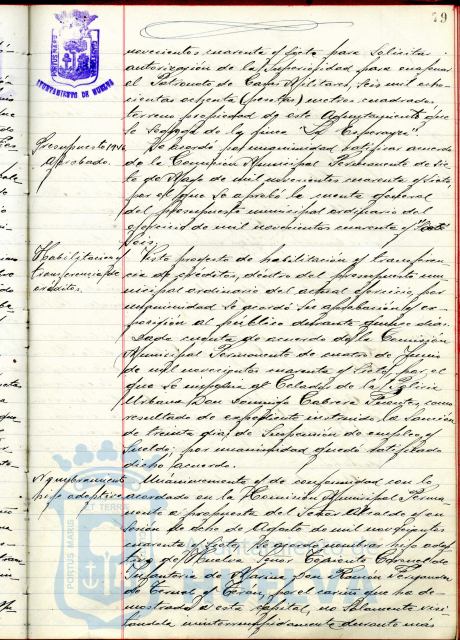 79
AYUNTAMIENTO DE HUELVA
novecientos cuarenta y siete para solicitar
autorización de la superioridad para enajenar
al Patronato de Casas Militares, seis mil ocho-
cientas ochenta (pesetas) metros cuadrados
terreno propiedad de este Ayuntamiento que
se segrega de la finca "La Esperanza".
Presupuesto 1946
Aprobado.
Se acordó por unanimidad ratificar acuerdo
de la Comisión Municipal Permanente de
de Mayo de mil novecientos cuarenta y siete,
por el que se aprobó la cuenta general
del presupuesto municipal ordinario del
ejercicio de mil novecientos cuarenta y
seis.
Habilitación y
transferencia de
créditos.
Visto proyecto de habilitación y transferen-
cia de créditos, dentro del presupuesto mu-
nicipal ordinario del actual ejercicio, por
unanimidad se acordó su aprobación y ex-
posición al público durante quince días.
Dada cuenta de acuerdo de la Comisión
Municipal Permanente de cuatro de Junio
de mil novecientos cuarenta y siete, por el
que se impone al Celador de la Policía
Urbana Don Domingo Cabrera Fuentes, como
resultado de expediente instruido la sanción
de treinta días de suspensión de empleo y
sueldo, por unanimidad quedó ratificado
dicho acuerdo.
Nombramiento
hijo adoptivo
Unánimemente y de conformidad con lo
acordado en la Comisión Municipal Perma-
nente a propuesta del Señor Alcalde y en
sesión de doce de Agosto de mil novecientos
cuarenta y siete, se nombra hijo adop-
tivo de Huelva Señor Teniente Coronel de
Infantería de Marina Don Ramón
de y por el cariño que ha de-
mostrado a esta capital, no solamente visi-
tándola ininterrumpidamente durante más
PORTUS MARIS ET TERRAE
Ayuntamiento de
HUELVA